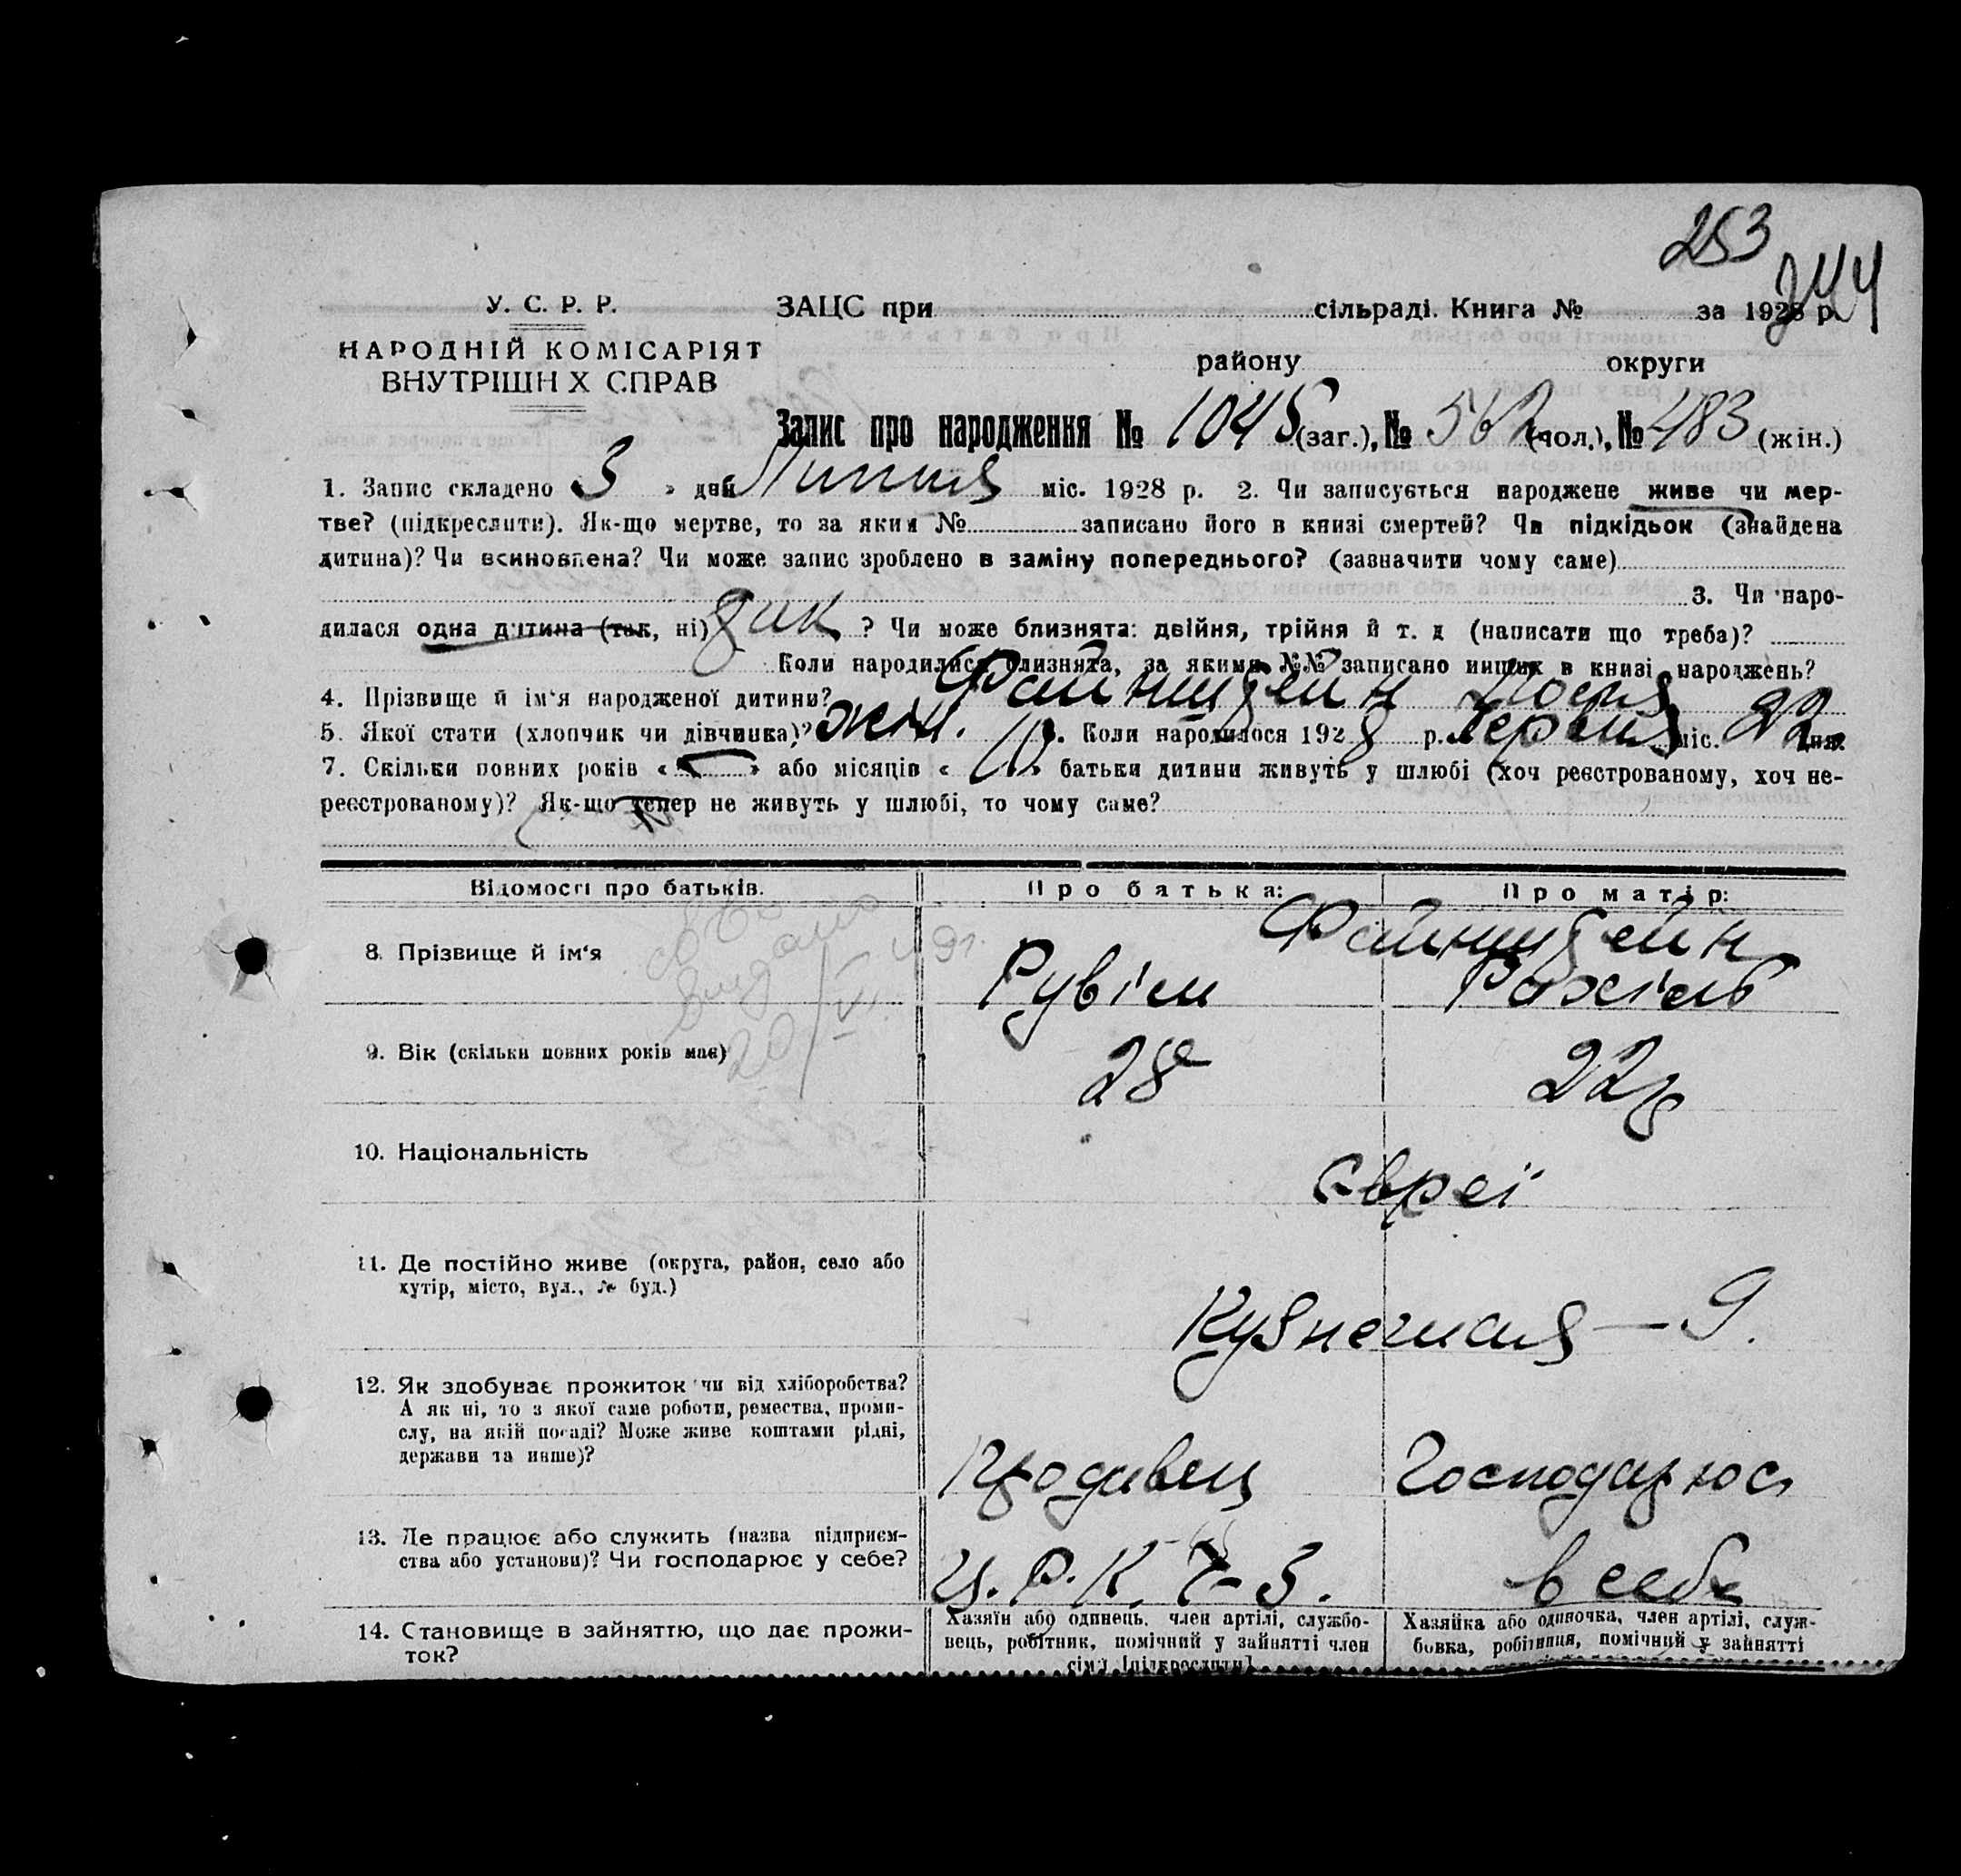 253
244
У. С. Р. Р.
ЗАЦС при сільраді. Книга № за 1928 р.
НАРОДНІЙ КОМІСАРІЯТ
ВНУТРІШН Х СПРАВ
району округи
Запис про народження № 1045 (заг.), № 562 (чол.), № 483 (жін.)
1. Запис складено « 3 » дня Липня міс. 1928 р. 2. Чи записується народжене живе чи мер-
тве? (підкреслити). Як-що мертве, то за яким № записано його в книзі смертей? Чи підкідьок (знайдена
дитина)? Чи всиновлена? Чи може запис зроблено в заміну попереднього? (зазначити чому саме)
3. Чи наро-
дилася одна дитина (так, ні) так ? Чи може близнята: двійня, трійня й т. д (написати що треба)?
Коли народилися близнята, за якими №№ записано инших в книзі народжень?
4. Прізвище й ім'я народженої дитини? Файнштейн
5. Якої стати (хлопчик чи дівчинка)? жін. Коли народилося 1928 р. Червня міс. 22 дня
7. Скільки повних років « » або місяців « » батьки дитини живуть у шлюбі (хоч реєстрованому, хоч не-
реєстрованому)? Як-що тепер не живуть у шлюбі, то чому саме?
Відомості про батьків. Про батька: Про матір:
Файнштейн
8. Прізвище й ім'я Рувім Рахіль
видано
20/VI
9. Вік (скільки повних років має) 28 22
10. Національність Євреї
11. Де постійно живе (округа, район, село або
хутір, місто, вул., № буд.)
Кузнечная — 9.
12. Як здобуває прожиток чи від хліборобства?
А як ні, то з якої саме роботи, ремества, проми-
слу, на якій посаді? Може живе коштами рідні,
держави та инше)?
Продавець Господарює
13. Де працює або служить (назва підприєм-
ства або установи)? Чи господарює у себе?
Ц. Р. К. в себе
14. Становище в зайняттю, що дає прожи-
ток?
Хазяїн або одинець, член артілі, службо-
вець, робітник, помічний у зайнятті член
сім'ї [підкреслити]
Хазяйка або одиночка, член артілі, служ-
бовка, робітниця, помічний у зайнятті